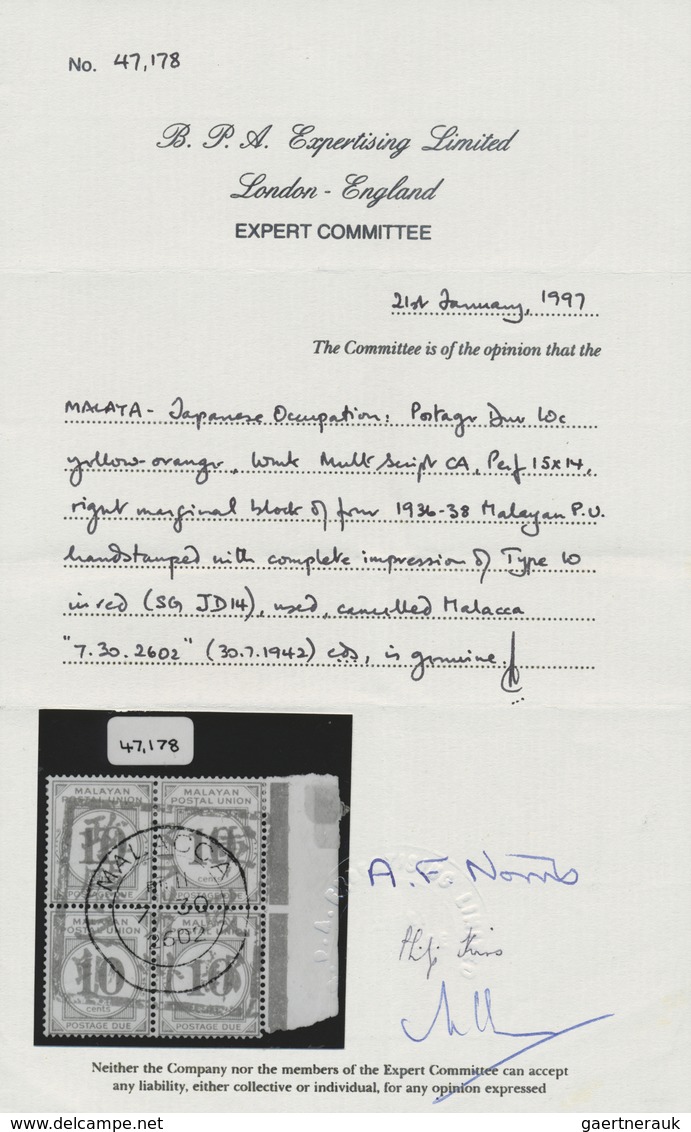 No. 47,178
B. P. A. Expertising Limited
London - England
EXPERT COMMITTEE
21st January, 1997
The Committee is of the opinion that the
MALAYA - Japanese Occupation: Postage Due 10c
yellow-orange, Wmk Mult Script CA, Perf 15x14,
right marginal block of four 1936-38 Malayan P.U.
handstamped with complete impression of Type 10
in red (SG JD14), used, cancelled Malacca
"7.30.2602" (30.7.1942) cds, is genuine.
47,178
MALAYAN POSTAL UNION MALAYAN POSTAL UNION
10 10
cents
MALACCA
7 30
2602
MALAYAN POSTAL UNION MALAYAN POSTAL UNION
10 10
cents cents
POSTAGE DUE POSTAGE DUE
A. F. Norris
Neither the Company nor the members of the Expert Committee can accept
any liability, either collective or individual, for any opinion expressed
gaertnerauk